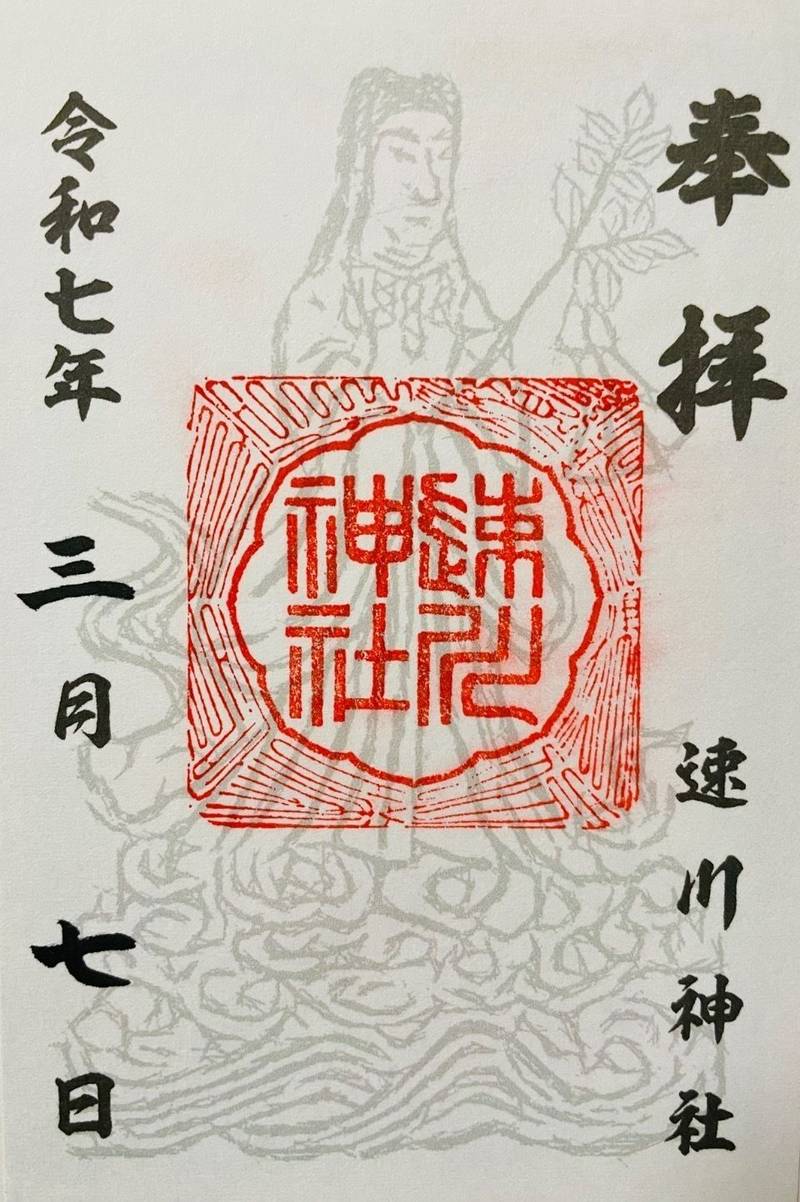 奉拝
速川神社
速川
神社
令和七年三月七日